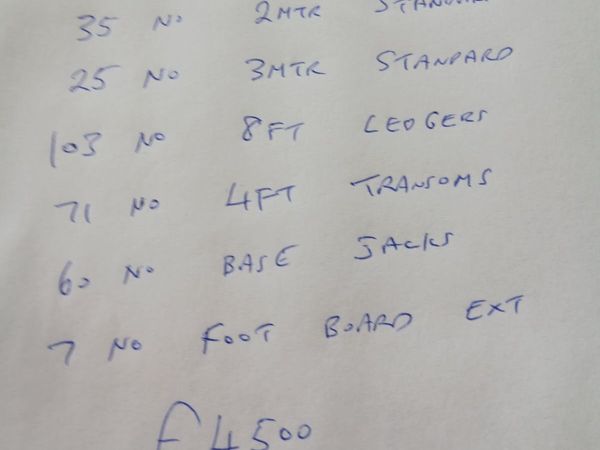 35 No 2MTR
25 No 3MTR STANDARD
103 No 8FT LEDGERS
71 No 4FT TRANSOMS
60 No BASE JACKS
7 No FOOT BOARD EXT
£4500